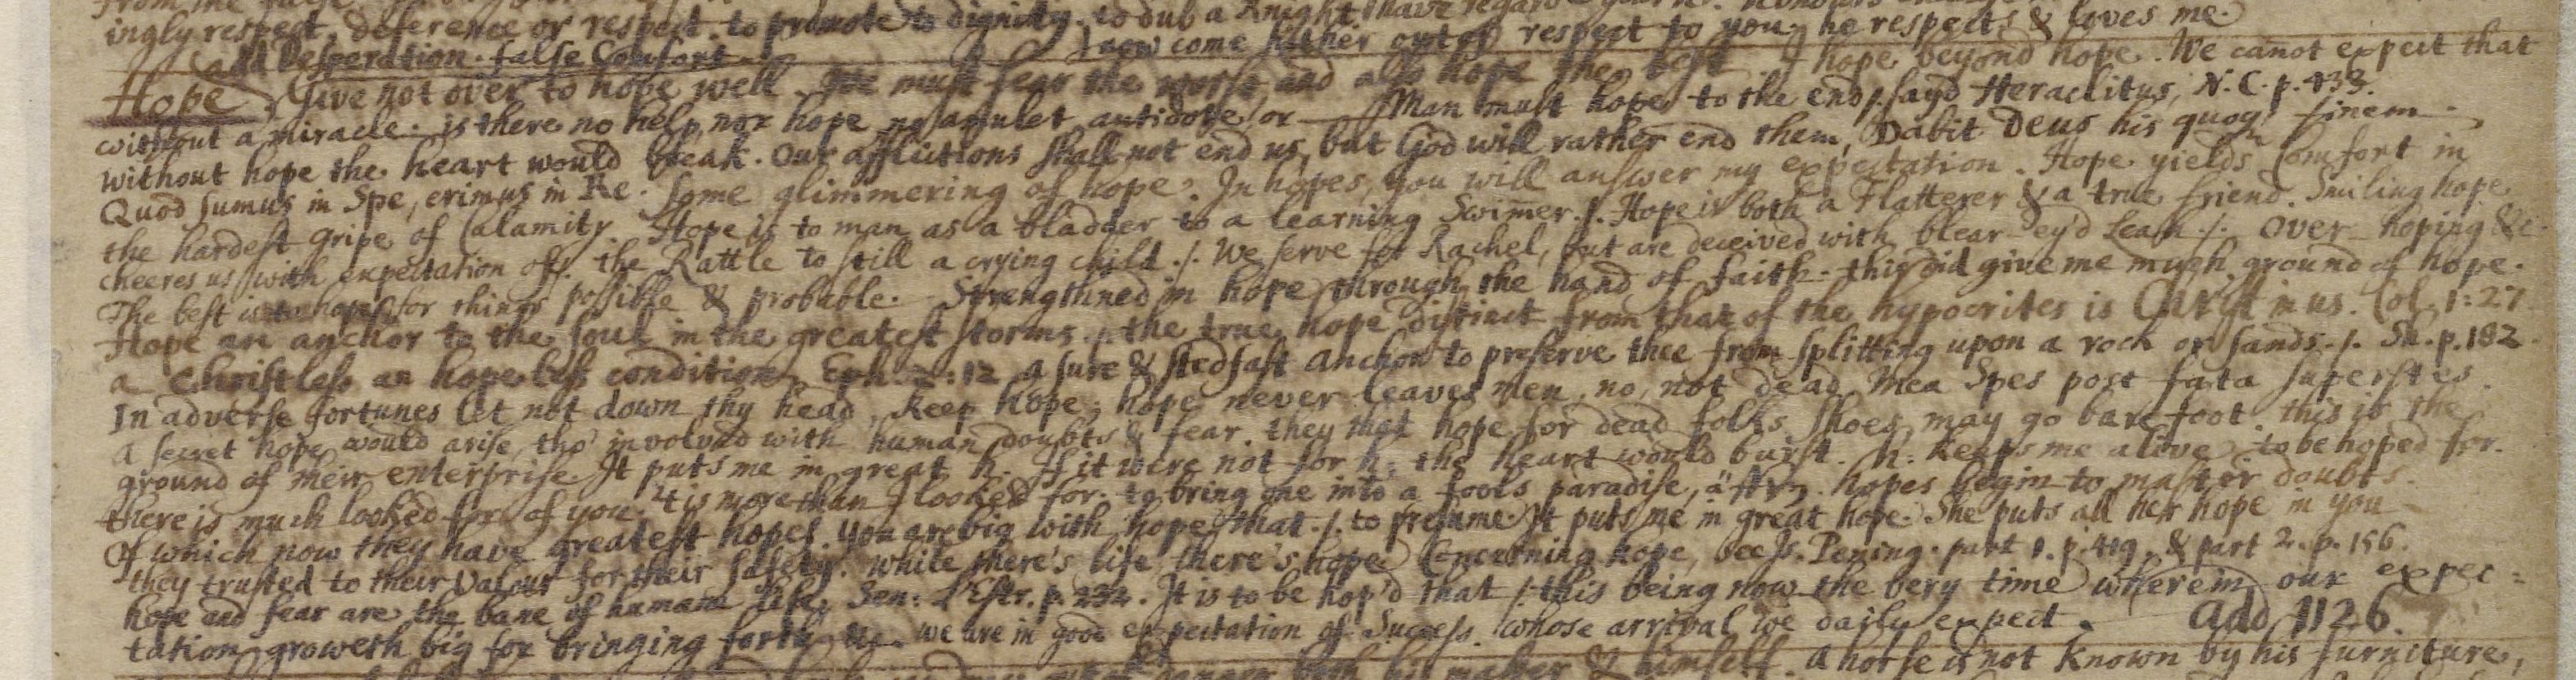 ingly respect, deference or respect. to promote to dignity. to dub a Knight. I have regard
I now come hither out of respect to you. he respects & loves me.
add Desperation. false Comfort
Hope. Give not over to hope well. We must fear the worst and also hope the best. I hope beyond hope. We canot expect that
without a miracle. is there no help, nor hope no amulet antidote, or — Man must hope to the end, sayd Heraclitus, N. C. p. 433.
without hope the heart would break. Our afflictions shall not end us, but God will rather end them, Dabit Deus his quoq; finem.
Quod sumus in Spe, erimus in Re. some glimmering of hope. In hopes, you will answer my expectation. Hope yields Comfort in
the hardest gripe of Calamity. Hope is to man as a bladder to a learning Swimer ./. Hope is both a Flatterer & a true friend. Smiling hope
cheeres us with expectation of ./. the Rattle to still a crying child ./. We serve for Rachel, but are deceived with blear-ey'd Leah ./. Over-hoping &c.
The best is to hope for things possible & probable. Strengthned in hope through the hand of faith. this did give me much ground of hope.
Hope an anchor to the soul in the greatest storms ./. the true hope distinct from that of the hypocrites is Christ in us. Col. 1:27
a Christless an hopeless condition. Eph. 2:12 a sure & stedfast anchor to preserve thee from splitting upon a rock or sands ./. Sh. p. 182.
In adverse fortunes let not down thy head, Keep hope; hope never leaves men, no, not dead. Mea Spes post fata superstes.
A secret hope would arise, tho' involved with human doubts & fear. they that hope for dead folks shoes, may go bare foot. this is the
ground of their enterprise. It puts me in great h. If it were not for h: the heart would burst. h: keeps me alive. to be hoped for.
there is much looked for of you. 'tis more than I looked for. to bring one into a fools paradise, hopes begin to master doubts.
Of which now they have greatest hopes. You are big with hope that ./. to presume. It puts me in great hope. She puts all her hope in you
they trusted to their Valour for their safety. while there's life there's hope. Concerning hope, see Is. Pening. part 1. p. 419. & part 2. p. 156.
hope and fear are the bane of humane life. Sen: L'Estr. p. 232. It is to be hop'd that ./. this being now the very time wherein our expec=
tation groweth big for bringing forth we are in good expectation of Success. whose arrival we daily expect. add 1126.
his maker & himself. A horse is not known by his furniture,